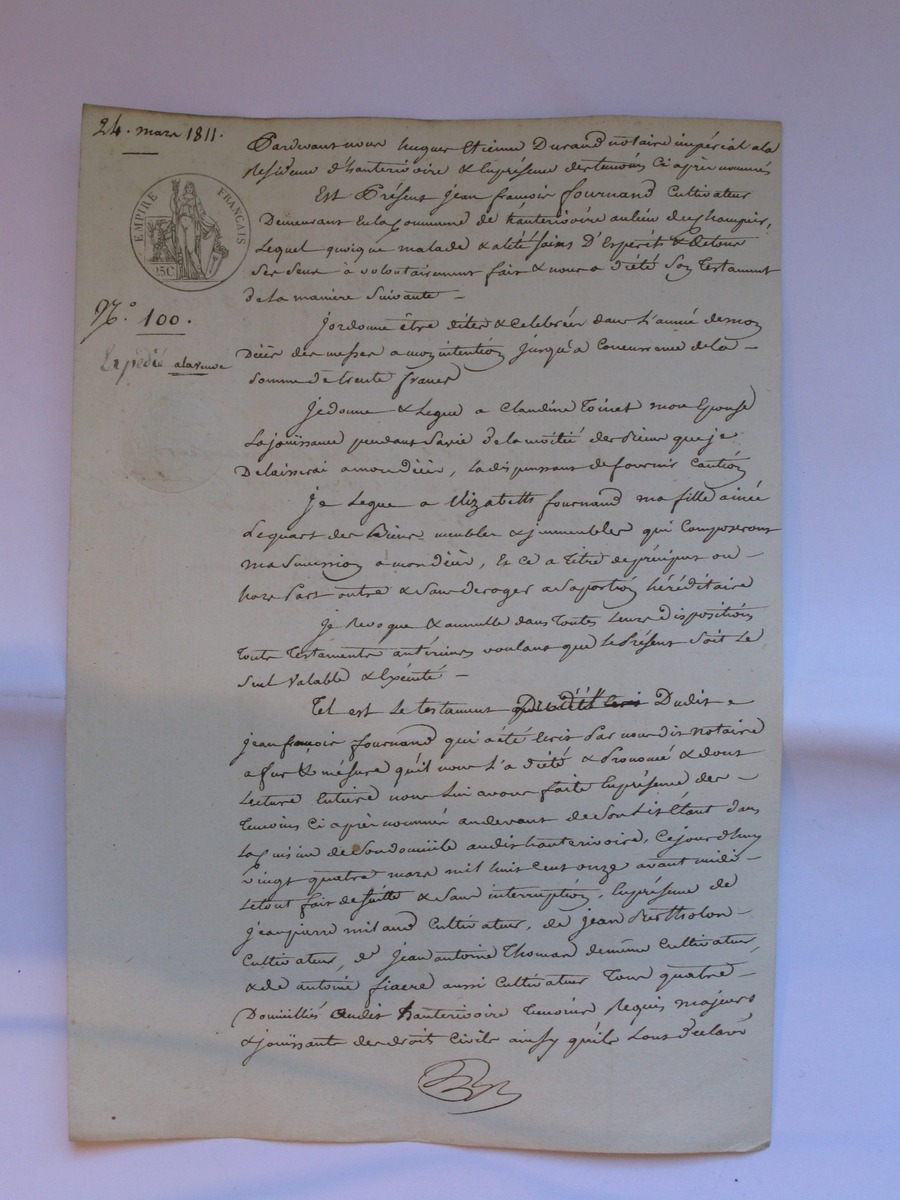 24. mars 1811.
EMPIRE FRANÇAIS
25C
N.° 100.
Expédié a la veuve
Pardevant nous hugues Etienne Durand notaire impérial a la
Residence d'hauterivoire & En présence des temoins Ci après nommés
Est Présent jean françois fournand Cultivateur
Demeurant En la Commune de hauterivoire au lieu de
Lequel quoique malade & alité Sains D'Esperit & de tous
Ses Sens à volontairement fait & nous a dicté Son Testament
de la maniere Suivante –
j'ordonne être dites & Celebrées dans l'année de mon
Décès des messes a mon intention jusqu'a Concurrence de la –
Somme de trente francs
je donne & Legue a Claudine Toinet mon Epouse
La joüissance pendant Sa vie de la moitié des Biens que je
Delaisserai a mon décès, la dispensant de fournir Caution
je Legue a Elizabeth fournand ma fille ainée
Le quart des Biens meubles & jmmeubles qui Composeront
ma Succession a mon décès, Et ce a Titre de préciput ou –
hors Part outre & Sans deroger a Sa portion héréditaire
je Revoque & annulle dans Toutes Leurs dispositions
Touts Testaments antérieurs voulant que le Présent Soit Le
Seul Valable & Exécuté –
Tel est Le testament Dudit
jean françois fournand qui a été Ecrit Par nous dit notaire
a fur & mésure qu'il nous l'a dicté & Prononcé & dont
Lecture Entiere nous Lui avons faite En présence des –
Temoins Ci après nommés au devant de Son Lit Etant dans
La Cuisine de Son domicile audit hauterivoire, Cejourdhuy
Vingt quatre mars mil huit Cent onze avant midi –
Le tout fait de Suitte & Sans interruption, En présence de
jean pierre Cultivateur, de jean Bertholon –
Cultivateur, de jean antoine Thomas de même Cultivateur,
& de antoine fiacre aussi Cultivateur Tous quatre –
Domiciliés Audit hauterivoire Temoins Requis majeurs
& joüissants des droits Civils ainsy qu'ils L'ont déclaré